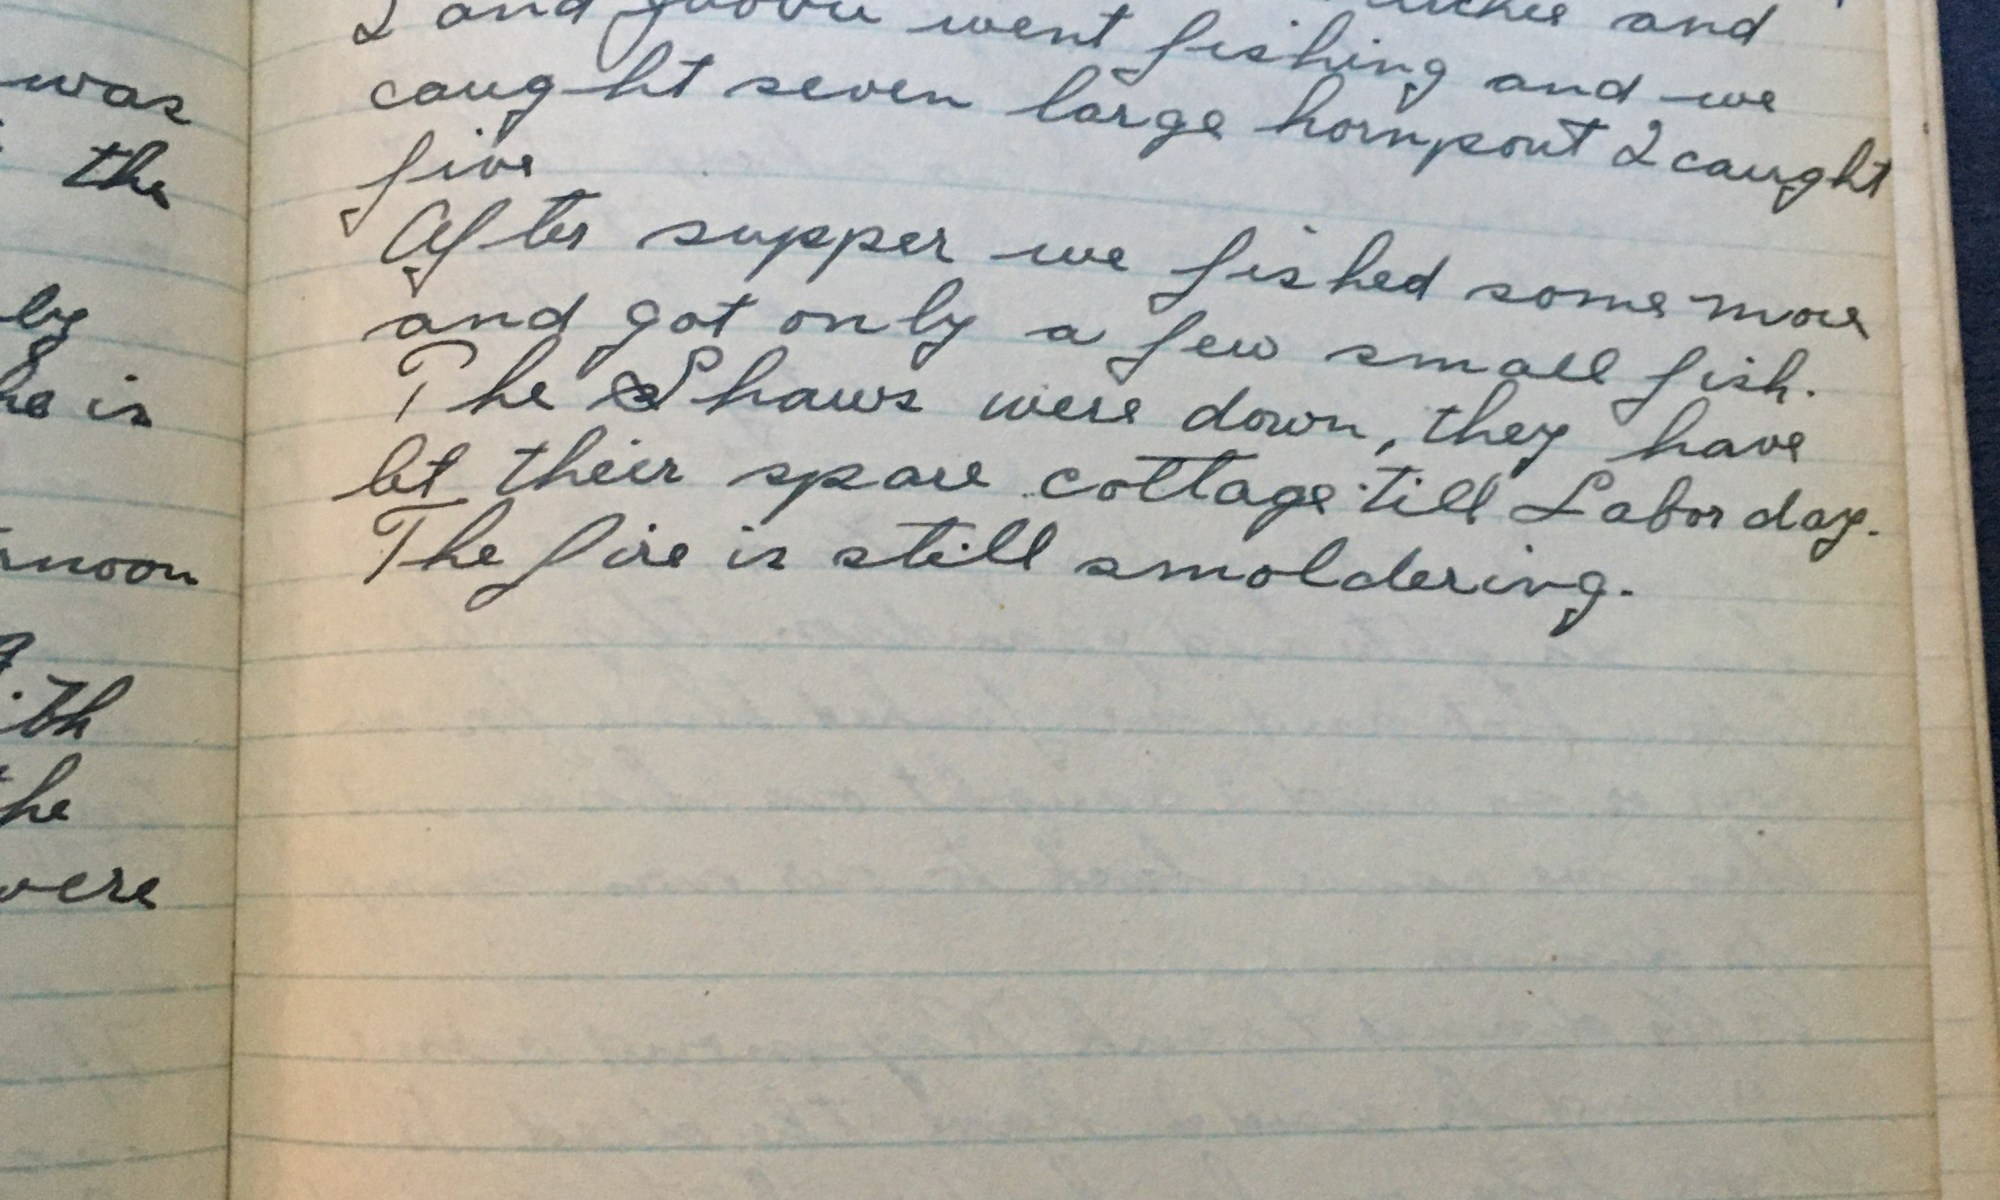 was
the
by
he is
noon
ith
the
were
and
I and went fishing and we
caught seven large hornpout I caught
five
After supper we fished some more
and got only a few small fish.
The Shaws were down, they have
let their spare cottage till Labor day.
The fire is still smoldering.